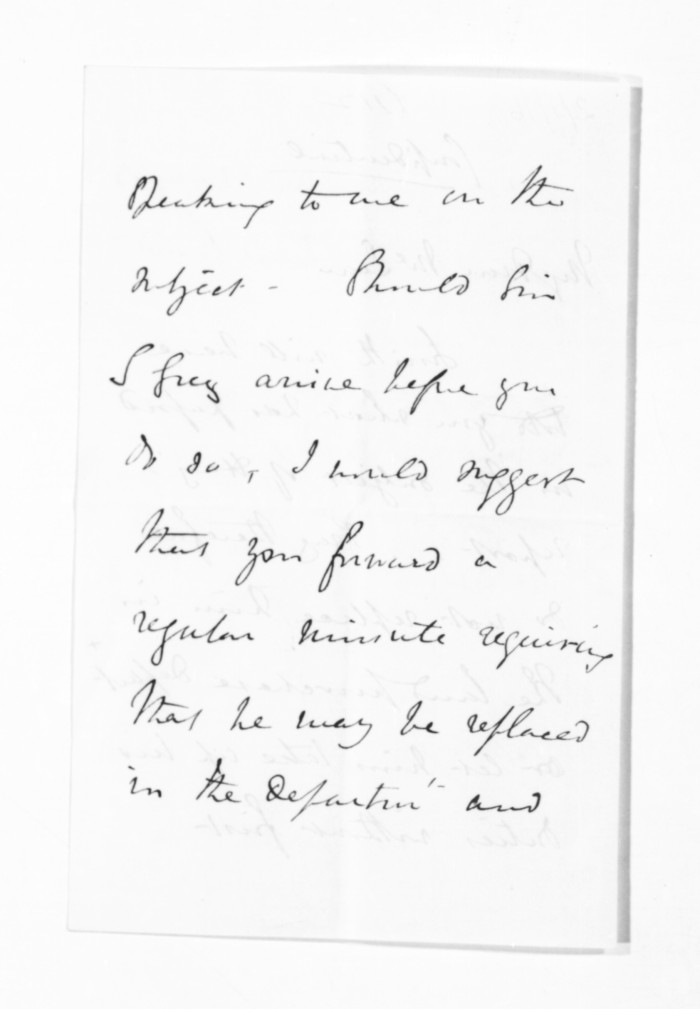 Speaking to me on the
subject - Should Sir
G Grey arrive before you
do so, I would suggest
that you forward a
regular minute requiring
that he may be replaced
in the Departmt and